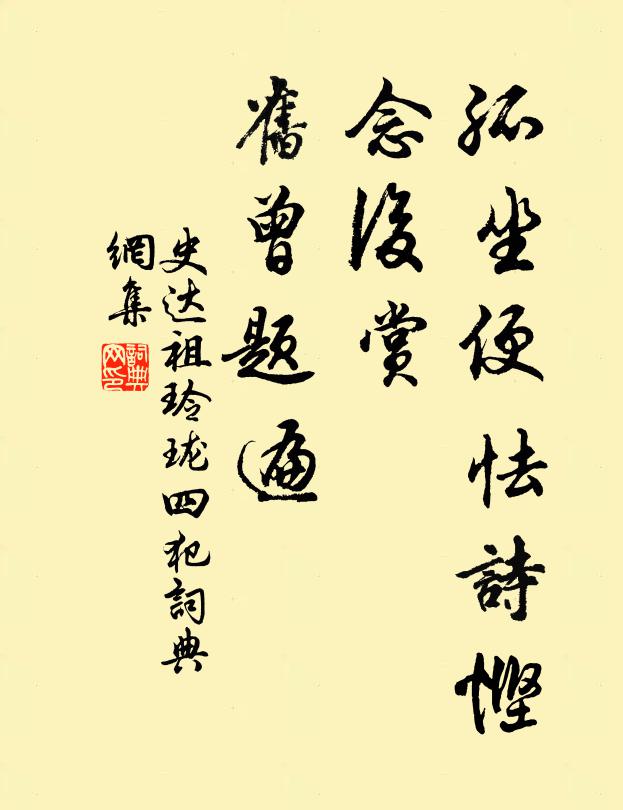 孤坐便怯詩慳
念後賞
舊曾題遍
史达祖玲珑四犯詞典
網集
詞典
网印